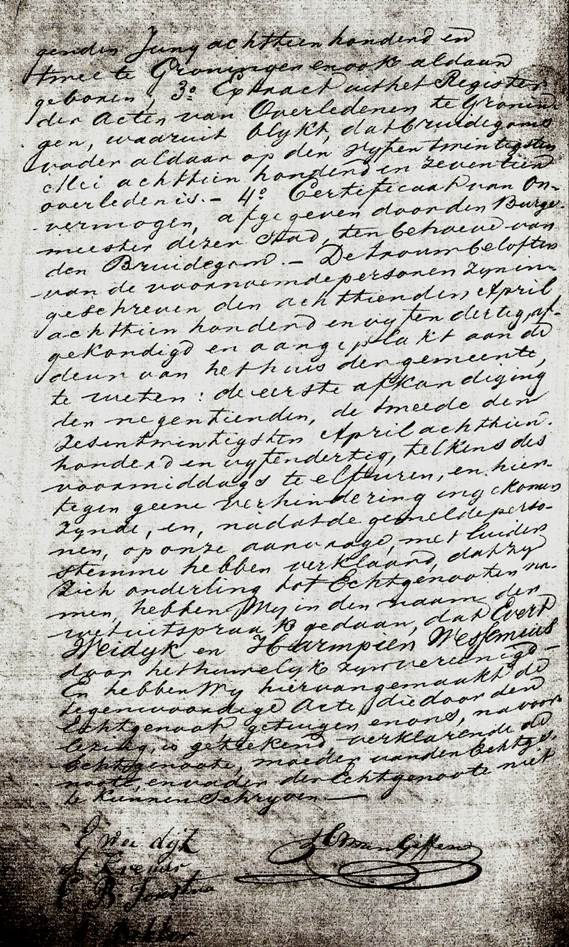 genden Juny achttien honderd en
twee te Groningen en ook aldaar
geboren, 3o. Extract uit het Register
der Acten van Overledenen te Gronin-
gen, waaruit blykt, dat bruidegoms
vader aldaar op den vyfentwintigsten
Mei achttien honderd en zeventien
overleden is. – 4o. Certificaat van On-
vermogen, afgegeven door den Burge-
meester dezer Stad, ten behoeve van
den Bruidegom. – De trouwbeloften
van de voornoemde personen zyn in-
geschreven den achttienden April
achttien honderd en vyf en dertig, af-
gekondigd en aangeplakt aan de
deur van het huis der gemeente,
te weten: de eerste afkondiging
den negentienden, de tweede den
zesentwintigsten April achttien-
honderd en vyfendertig, telkens des
voormiddags te elf uren, en hier-
tegen geene verhindering ingekomen
zynde, en, nadat de gemelde perso-
nen, op onze aanvrage, met luider
stemme hebben verklaard, dat zy
zich onderling tot Echtgenooten na-
men, hebben Wy in den naam der
wet uitspraak gedaan, dat Evert
Weidyk en Harmpien Wessemius
door het huwelyk zyn vereenigd –
En hebben Wy hiervan gemaakt de
tegenwoordige Acte, die door den
Echtgenoot, getuigen en ons, na voor-
lezing, is geteekend, verklarende de
Echtgenoote, moeder van den Echtge-
noot, en vader der Echtgenoote niet
te kunnen schryven –
E Wei dijk
C B
Bakker